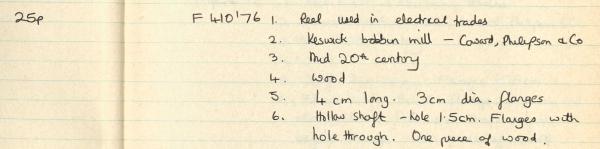 25p F 410'76 1. Reel used in electrical trades
2. Keswick bobbin mill - Coward, Philipson & Co
3. Mid 20th century
4. Wood
5. 4 cm long. 3cm dia. flanges
6. Hollow shaft - hole 1.5cm. Flanges with
hole through. One piece of wood.